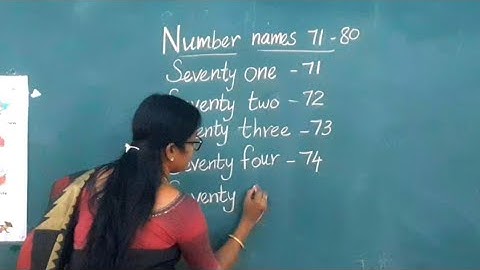 Number names 71-80
Seventy one - 71
Seventy two - 72
Seventy three - 73
Seventy four - 74
Seventy